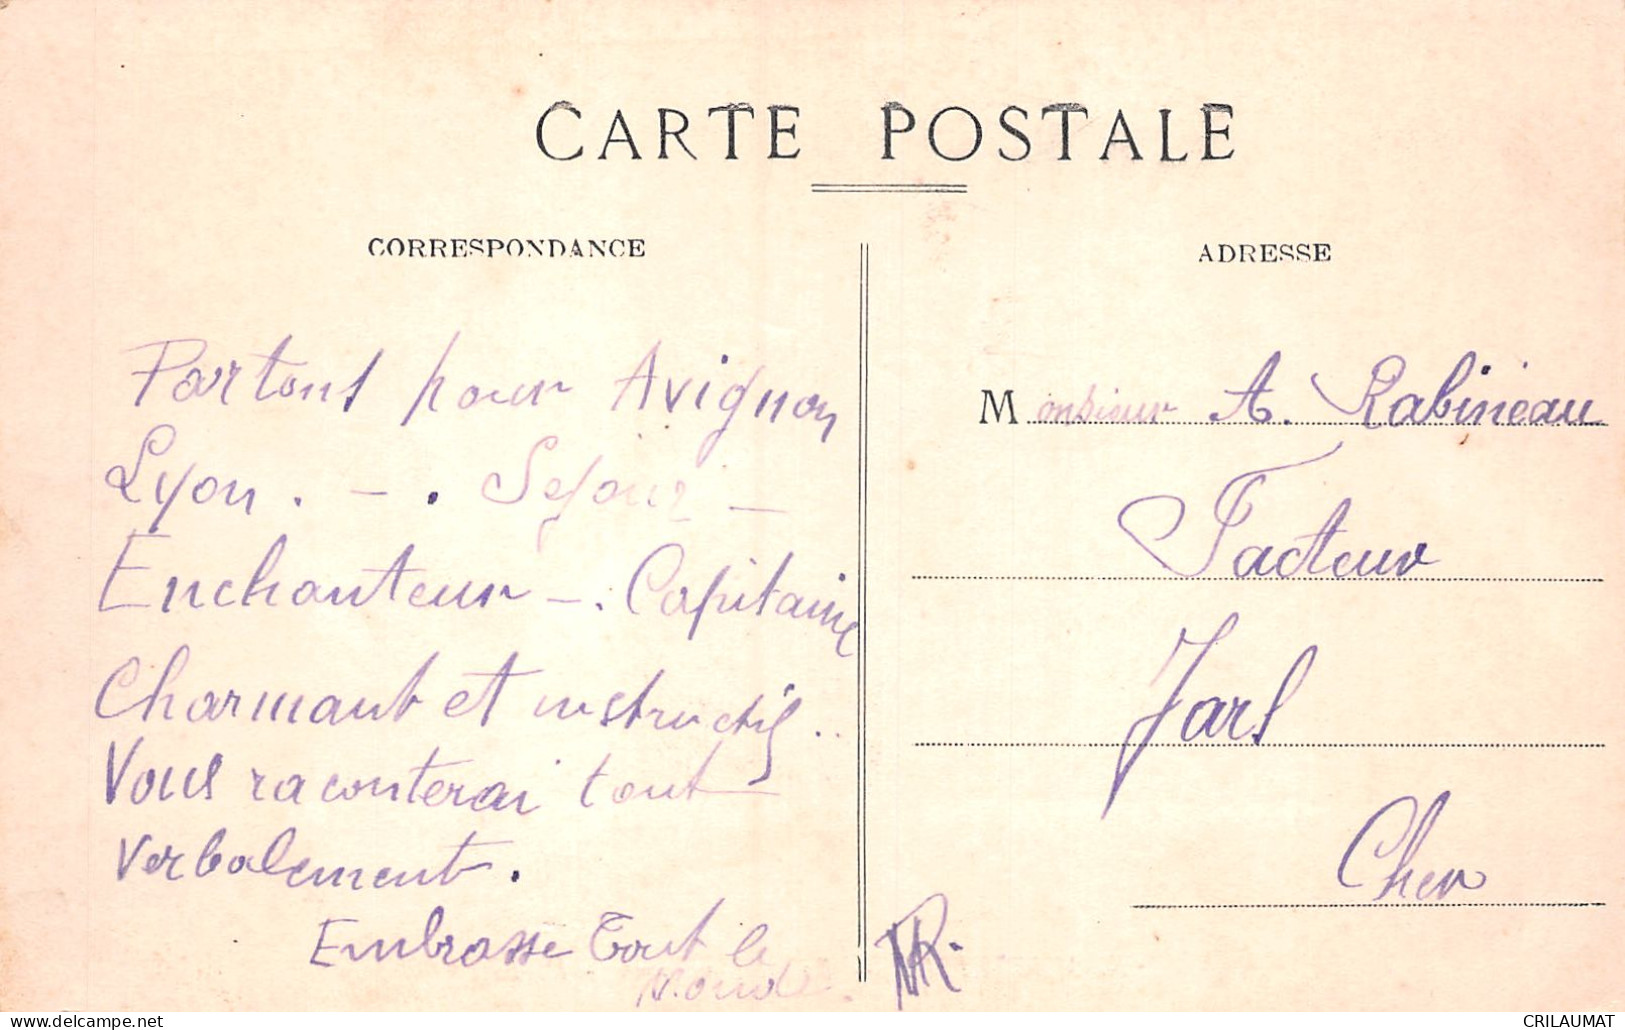 CARTE POSTALE
CORRESPONDANCE
Partons pour Avignon
Lyon. -. Sejour -
Enchanteur -. Capitaine
Charmant et instructif..
Vous raconterai tout
verbalement.
Embrasse Tout le
Monde
ADRESSE
Monsieur A. Rabineau
Facteur
Jars
Cher
CRILAUMAT